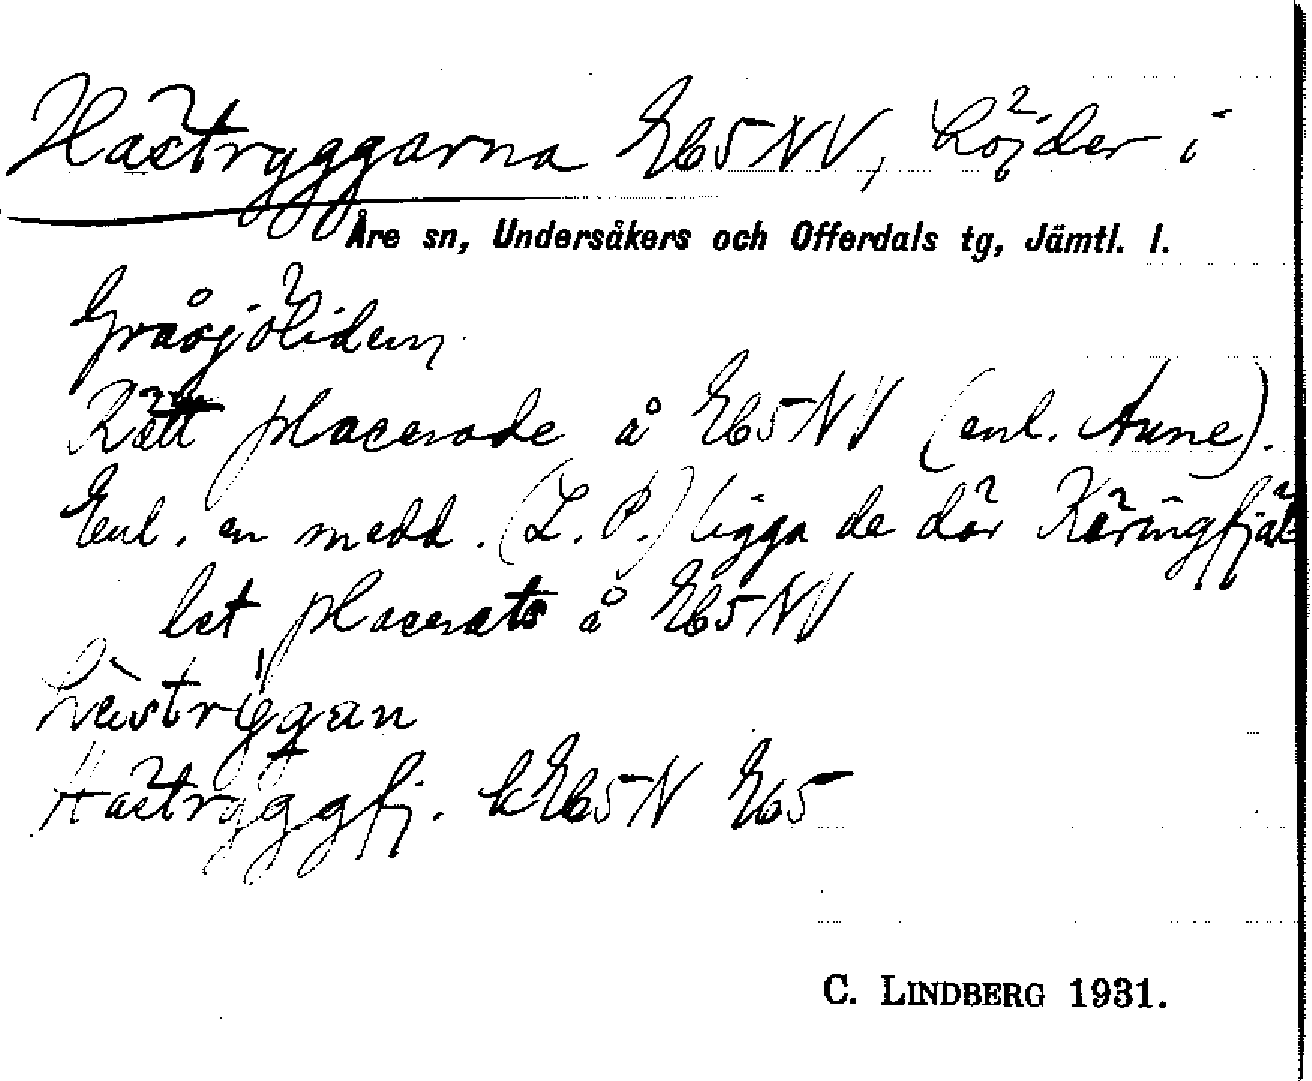 Hästryggarna Eb5NV, höjder i
Åre sn, Undersåkers och Offerdals tg, Jämtl. l.
Gråsjöliden.
Rätt placerade å Eb5NV (enl. Aune).
Enl. en medd. (L. P.) ligga de där Käringfjäl
let placerats å Eb5NV
Hästryggfj. k Eb5N Eb5
C. LINDBERG 1931.